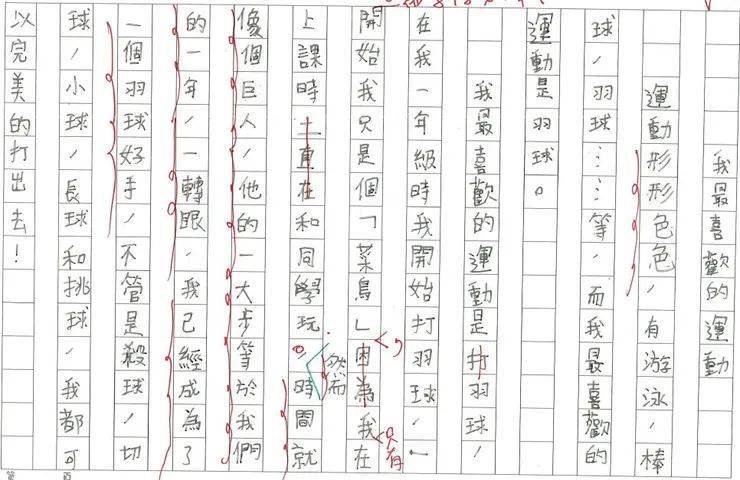 我最喜歡的運動
運動形形色色，有游泳，棒
球，羽球……等，而我最喜歡的
運動是羽球。
我最喜歡的運動是打羽球，
在我一年級時我開始打羽球，一
開始我只是個「菜鳥」，因為我只有在
上課時一直在和同學玩。然而時間就
像個巨人，他的一大步等於我們
的一年，一轉眼，我已經成為了
一個羽球好手，不管是殺球，切
球，小球，長球和挑球，我都可
以完美的打出去！